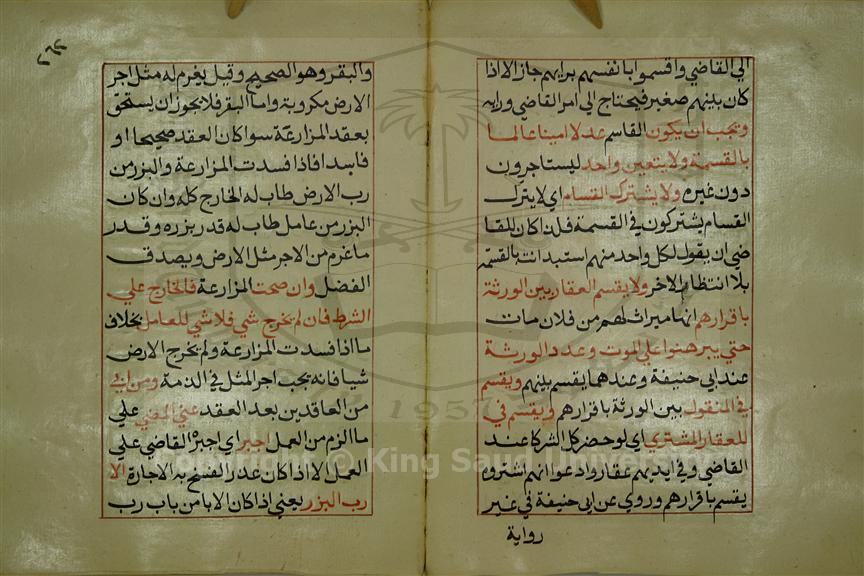 الي القاضي واقسموا بانفسهم برايهم جاز الا اذا
كان بينهم صغير فيحتاج الي امر القاضي ورايه
ويجب ان يكون القاسم عدلا امينا عالما
بالقسمة ولا يتعين واحد ليستاجرون
دون غيره ولا يشترك القسام اي لا يترك
القسام يشتركون في القسمة فلذا كان للقا
ضي ان يقول لكل واحد منهم استبد انت بالقسمة
بلا انتظار الاخر ولا يقسم العقار بين الورثة
باقرارهم انها ميراث لهم من فلان مات
حتي يبرهنوا علي الموت وعدد الورثة
عند ابي حنيفة وعندهما يقسم بينهم ويقسم
في المنقول بين الورثة باقرارهم ويقسم في
للعقار المشتري اي لو حضر كل الشركا عند
القاضي وفي ايديهم عقار وادعوا انهم اشتروه
يقسم باقرارهم وروي عن ابي حنيفة في غير
رواية
٢٦٢
والبقر وهو الصحيح وقيل يغرم له مثل اجر
الارض مكروبة واما البقر فلا يجوز ان يستحق
بعقد المزارعة سوا كان العقد صحيحا او
فاسدا فاذا فسدت المزارعة والبزر من
رب الارض طاب له الخارج كله وان كان
البزر من عامل طاب له قدر بزره وقدر
ما غرم من الاجر مثل الارض ويصدق
الفضل وان صحت المزارعة فالخارج علي
الشرط فان لم يخرج شي فلا شي للعامل بخلاف
ما اذا فسدت المزارعة ولم يخرج الارض
شيا فانه يجب اجر المثل في الذمة ومن ابي
من العاقدين بعد العقد عن المضي علي
ما الزم من العمل اجبر اي اجبره القاضي علي
العمل الا اذا كان عذر الفسخ به الاجارة الا
رب البزر يعني اذا كان الابا من باب رب
© King Saud University
1957